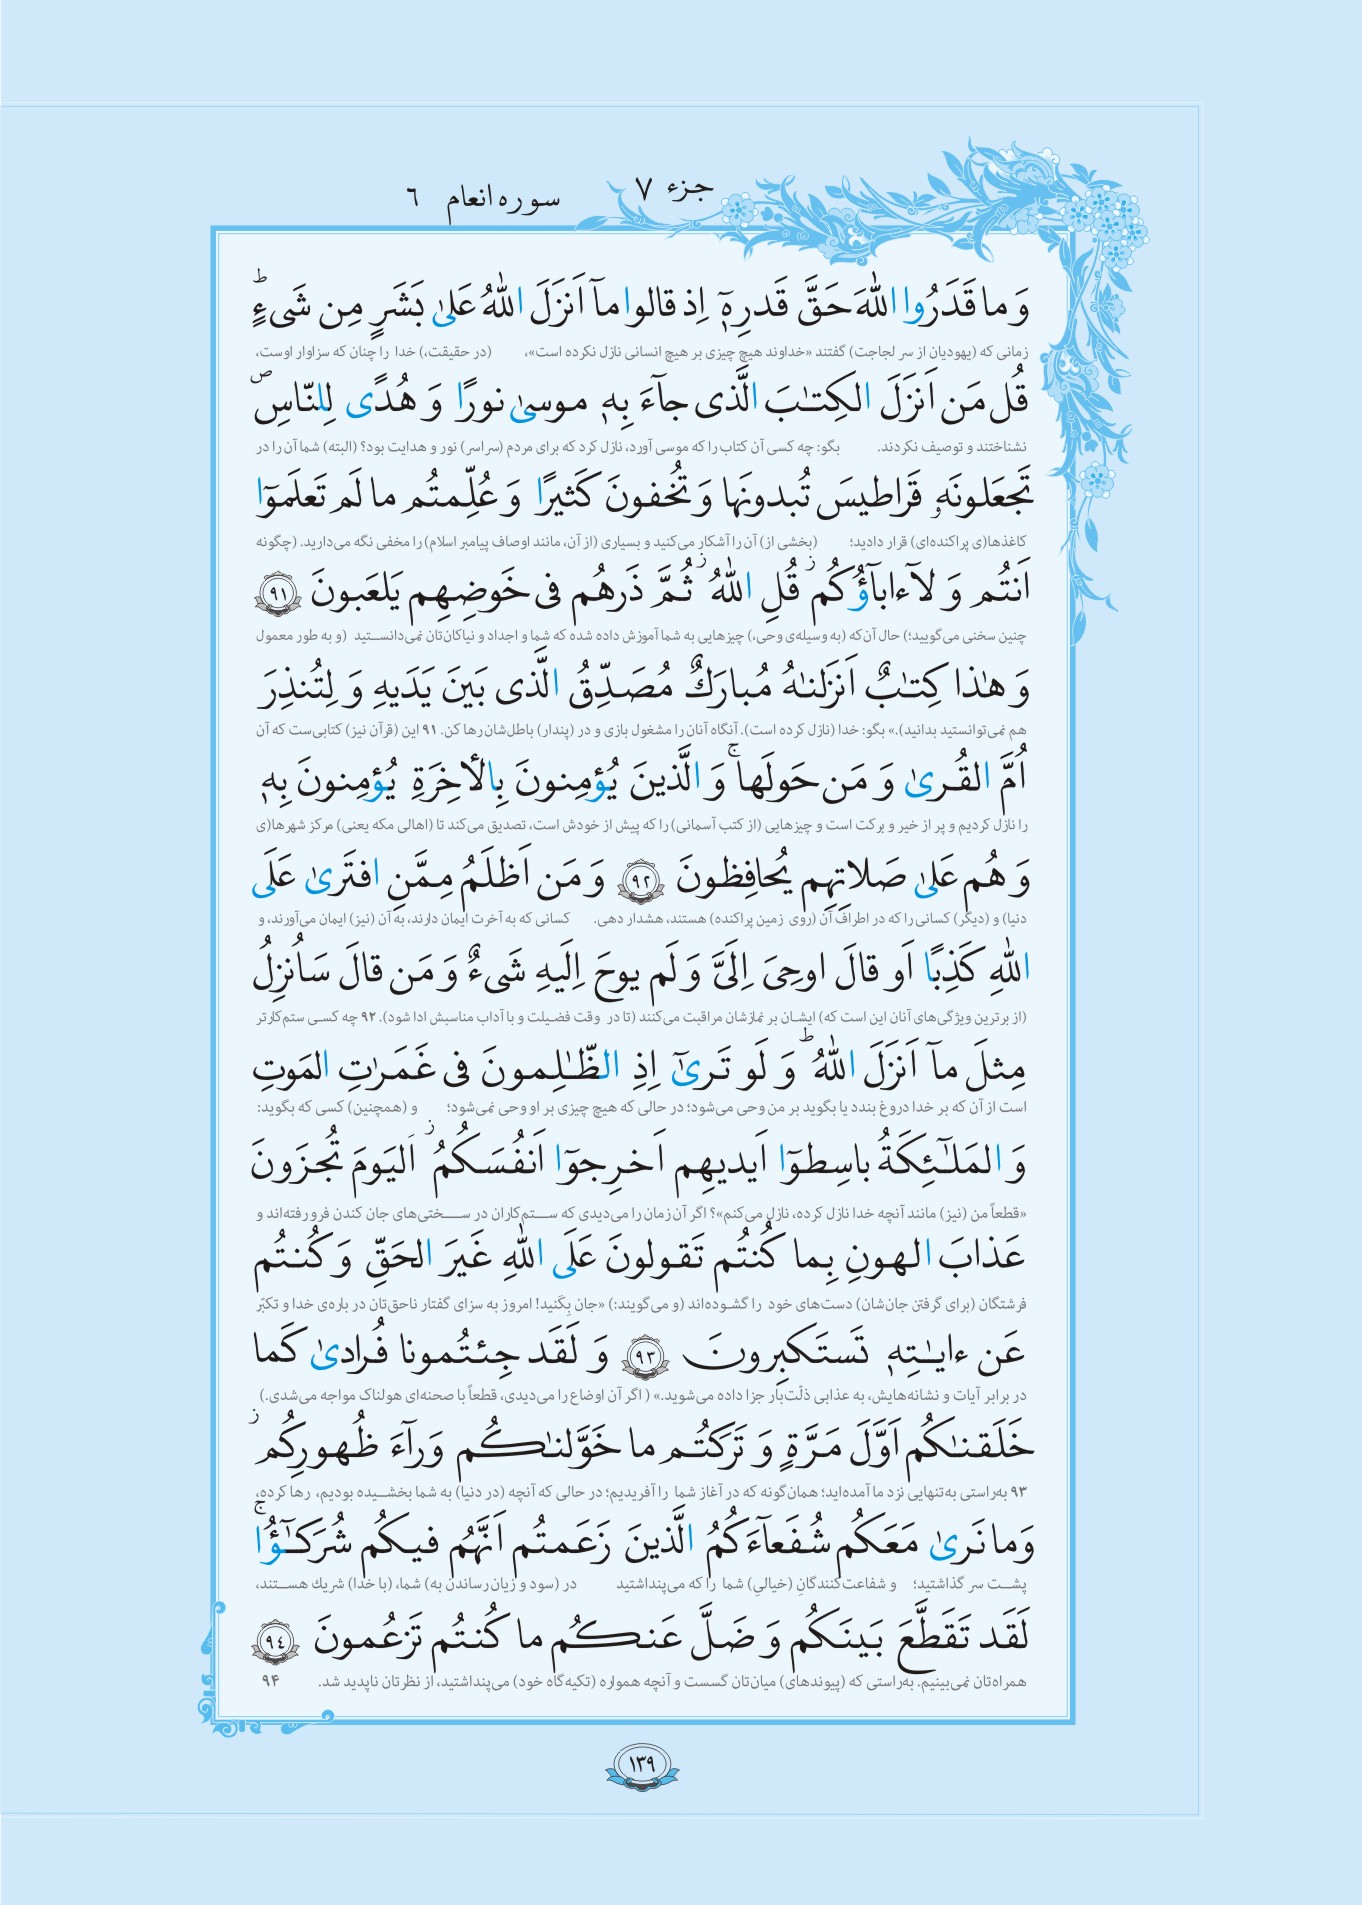 جزء ٧
سوره انعام ٦
وَ ما قَدَرُوا اللّٰهَ حَقَّ قَدرِهٖٓ اِذ قالوا مآ اَنزَلَ اللّٰهُ عَلىٰ بَشَرٍ مِن شَىءٍ ۗ
زمانی که (یهودیان از سر لجاجت) گفتند «خداوند هیچ چیزی بر هیچ انسانی نازل نکرده است»، (در حقیقت،) خدا را چنان که سزاوار اوست،
قُل مَن اَنزَلَ الكِتٰبَ الَّذى جآءَ بِهٖ موسىٰ نورًا وَ هُدًى لِلنّاسِ ۖ
نشناختند و توصیف نکردند. بگو: چه کسی آن کتاب را که موسی آورد، نازل کرد که برای مردم (سراسر) نور و هدایت بود؟ (البته) شما آن را در
تَجعَلونَهٗ قَراطيسَ تُبدونَها وَ تُخفونَ كَثيرًا وَ عُلِّمتُم ما لَم تَعلَموٓا
کاغذها(ی پراکنده‌ای) قرار دادید؛ (بخشی از) آن را آشکار می‌کنید و بسیاری (از آن، مانند اوصاف پیامبر اسلام) را مخفی نگه می‌دارید. (چگونه
اَنتُم وَ لآ ءابآؤُكُم ز قُلِ اللّٰهُ ز ثُمَّ ذَرهُم فى خَوضِهِم يَلعَبونَ ٩١
چنین سخنی می‌گویید؛) حال آن‌که (به وسیله‌ی وحی،) چیزهایی به شما آموزش داده شده که شما و اجداد و نیاکان‌تان نمی‌دانستید (و به طور معمول
وَ هٰذا كِتٰبٌ اَنزَلنٰهُ مُبارَكٌ مُصَدِّقُ الَّذى بَينَ يَدَيهِ وَ لِتُنذِرَ
هم نمی‌توانستید بدانید).» بگو: خدا (نازل کرده است). آنگاه آنان را مشغول بازی و در (پندار) باطل‌شان رها کن. ۹۱ این (قرآن نیز) کتابی‌ست که آن
اُمَّ القُرىٰ وَ مَن حَولَها ۚ وَ الَّذينَ يُؤمِنونَ بِالأخِرَةِ يُؤمِنونَ بِهٖ
را نازل کردیم و پر از خیر و برکت است و چیزهایی (از کتب آسمانی) را که پیش از خودش است، تصدیق می‌کند تا (اهالی مکه یعنی) مرکز شهرها(ی
وَ هُم عَلىٰ صَلاتِهِم يُحافِظونَ ٩٢ وَ مَن اَظلَمُ مِمَّنِ افتَرىٰ عَلَى
دنیا) و (دیگر) کسانی را که در اطراف آن (روی زمین پراکنده) هستند، هشدار دهی. کسانی که به آخرت ایمان دارند، به آن (نیز) ایمان می‌آورند، و
اللّٰهِ كَذِبًا اَو قالَ اوحِىَ اِلَىَّ وَ لَم يوحَ اِلَيهِ شَىءٌ وَ مَن قالَ سَاُنزِلُ
(از برترین ویژگی‌های آنان این است که) ایشان بر نمازشان مراقبت می‌کنند (تا در وقت فضیلت و با آداب مناسبش ادا شود). ۹۲ چه کسی ستم‌کارتر
مِثلَ مآ اَنزَلَ اللّٰهُ ۗ وَ لَو تَرىٰٓ اِذِ الظّٰلِمونَ فى غَمَرٰتِ المَوتِ
است از آن که بر خدا دروغ بندد یا بگوید بر من وحی می‌شود؛ در حالی که هیچ چیزی بر او وحی نمی‌شود؛ و (همچنین) کسی که بگوید:
وَ المَلٰٓئِكَةُ باسِطوٓا اَيديهِم اَخرِجوٓا اَنفُسَكُمُ ز اَليَومَ تُجزَونَ
«قطعاً من (نیز) مانند آنچه خدا نازل کرده، نازل می‌کنم»؟ اگر آن زمان را می‌دیدی که ستم‌کاران در سختی‌های جان کندن فرو رفته‌اند و
عَذابَ الهونِ بِما كُنتُم تَقولونَ عَلَى اللّٰهِ غَيرَ الحَقِّ وَ كُنتُم
فرشتگان (برای گرفتن جان‌شان) دست‌های خود را گشوده‌اند (و می‌گویند:) «جان بِکَنید! امروز به سزای گفتار ناحق‌تان در باره‌ی خدا و تکبّر
عَن ءايٰتِهٖ تَستَكبِرونَ ٩٣ وَ لَقَد جِئتُمونا فُرادىٰ كَما
در برابر آیات و نشانه‌هایش، به عذابی ذلّت‌بار جزا داده می‌شوید.» ( اگر آن اوضاع را می‌دیدی، قطعاً با صحنه‌ای هولناک مواجه می‌شدی.)
خَلَقنٰكُم اَوَّلَ مَرَّةٍ وَ تَرَكتُم ما خَوَّلنٰكُم وَرآءَ ظُهورِكُم ز
۹۳ به‌راستی به‌تنهایی نزد ما آمده‌اید؛ همان‌گونه که در آغاز شما را آفریدیم؛ در حالی که آنچه (در دنیا) به شما بخشیده بودیم، رها کرده،
وَ ما نَرىٰ مَعَكُم شُفَعآءَكُمُ الَّذينَ زَعَمتُم اَنَّهُم فيكُم شُرَكٰٓؤُا ۚ
پشت سر گذاشتید؛ و شفاعت‌کنندگانِ (خیالیِ) شما را که می‌پنداشتید در (سود و زیان رساندن به) شما، (با خدا) شریك هستند،
لَقَد تَقَطَّعَ بَينَكُم وَ ضَلَّ عَنكُم ما كُنتُم تَزعُمونَ ٩٤
همراه‌تان نمی‌بینیم. به‌راستی که (پیوندهای) میان‌تان گسست و آنچه همواره (تکیه‌گاه خود) می‌پنداشتید، از نظرتان ناپدید شد. ۹۴
١٣٩